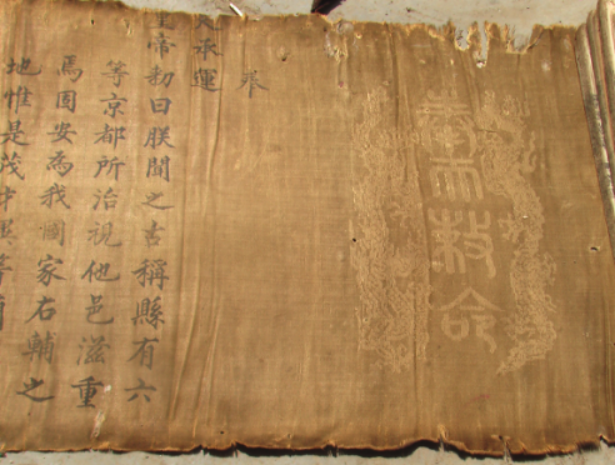 奉天敕命
奉
天承運
皇帝勅曰朕聞之古稱縣有六
等京都所治視他邑滋重
焉固安為我國家右輔之
地惟是茂才